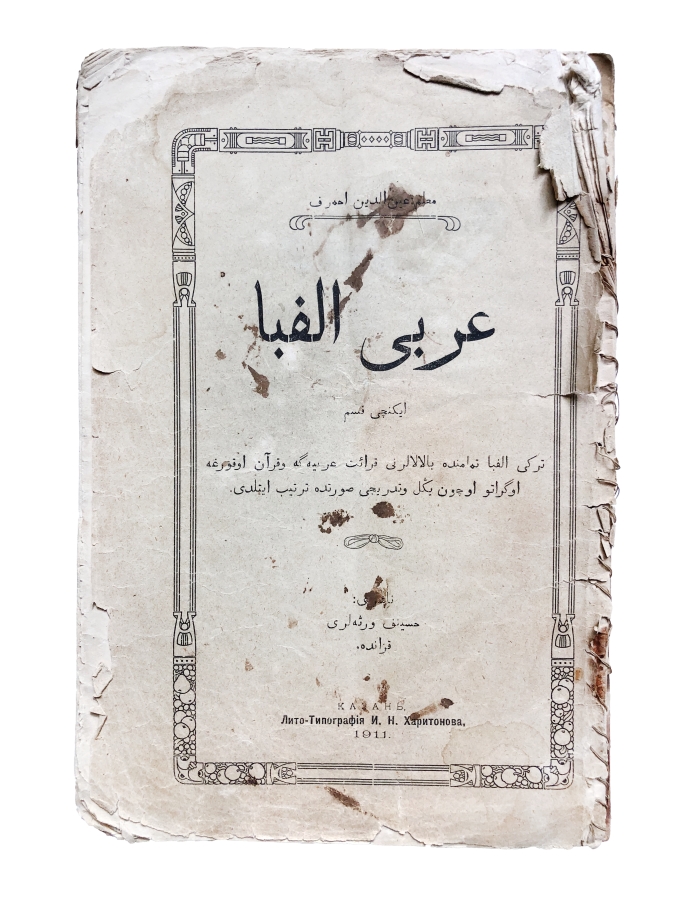 الدين احمرف
عربى الفبا
ايكنچى قسم
تركى الفبا تمامنده بالالارنى قرائت عربيه‌گه وقرآن اوقورغه
اوگراتو اوچون يڭل وتدريجى صورتده ترتيب ايتلدى.
حسينف ورثه‌لرى
قزانده.
КАЗАНЬ.
Лито-Типографія И. Н. Харитонова,
1911.